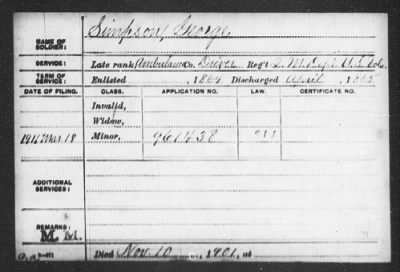 NAME OF SOLDIER: Simpson, George
SERVICE: Late rank Ambulance Driver Reg't Q. M. Dep't U.S. Vols.
TERM OF SERVICE: Enlisted , 1864 Discharged April , 1865
DATE OF FILING. CLASS. APPLICATION NO. LAW. CERTIFICATE NO.
Invalid,
Widow,
1911 Mar. 18 Minor, 961438
ADDITIONAL SERVICES:
REMARKS:
Died Nov. 10 , 1901, at